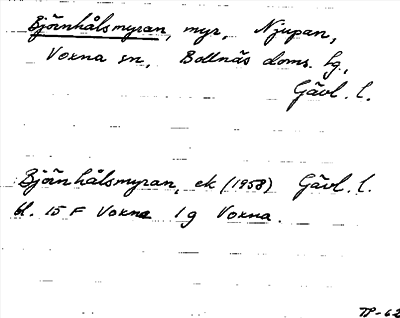 Björnhålsmyran, myr, Njupan,
Voxna sn, Bollnäs doms. fg.,
Gävl. l.
Björnhålsmyran, ek (1958) Gävl. l.
bl. 15 F Voxna 1 g Voxna.
TP-62